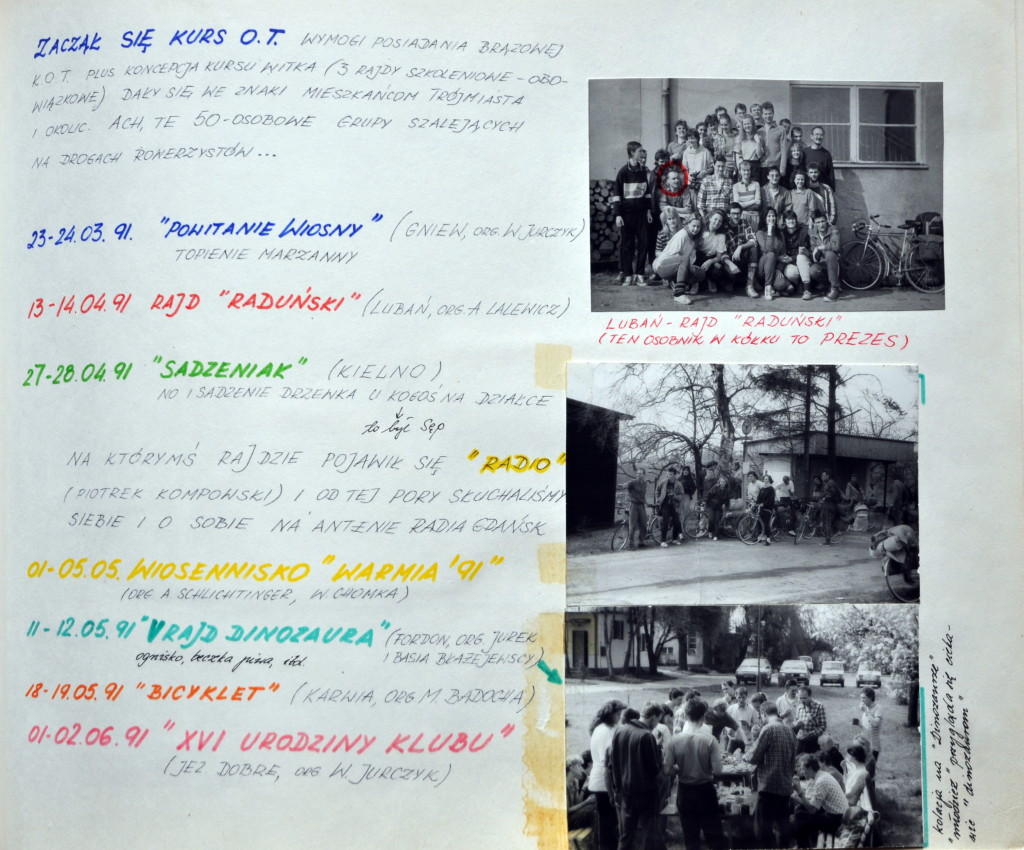 ZACZĄŁ SIĘ KURS O.T. WYMOGI POSIADANIA BRĄZOWEJ
K.O.T. PLUS KONCEPCJA KURSU WITKA (3 RAJDY SZKOLENIOWE - OBO-
WIĄZKOWE) DAŁY SIĘ WE ZNAKI MIESZKAŃCOM TRÓJMIASTA
I OKOLIC. ACH, TE 50-OSOBOWE GRUPY SZALEJĄCYCH
NA DROGACH ROWERZYSTÓW...
23-24.03.91. "POWITANIE WIOSNY" (GNIEW, ORG. W. JURCZYK)
TOPIENIE MARZANNY
13-14.04.91 RAJD "RADUŃSKI" (LUBAŃ, ORG. A LALEWICZ)
LUBAŃ - RAJD "RADUŃSKI"
(TEN OSOBNIK W KÓŁKU TO PREZES)
27-28.04.91 "SADZENIAK" (KIELNO)
NO I SADZENIE DRZEWKA U KOGOŚ NA DZIAŁCE
to był Sęp
NA KTÓRYMŚ RAJDZIE POJAWIŁ SIĘ "RADIO"
(PIOTREK KOMPOWSKI) I OD TEJ PORY SŁUCHALIŚMY
SIEBIE I O SOBIE NA ANTENIE RADIA GDAŃSK
01-05.05. WIOSENNISKO "WARMIA '91"
(ORG. A SCHLICHTINGER, W. CHOMKA)
11-12.05.91 "V RAJD DINOZAURA" (FORDON, ORG. JUREK
I BASIA BŁAŻEJEWSCY)
ognisko, beczka piwa, itd.
18-19.05.91 "BICYKLET" (KARWIA, ORG M. BADOCHA)
01-02.06.91 "XVI URODZINY KLUBU"
(JEZ DOBRE, ORG W. JURCZYK)
kolacja na "Dinozaurze"
"młodzież" przygląda się uka-
nie "dinozaurom"